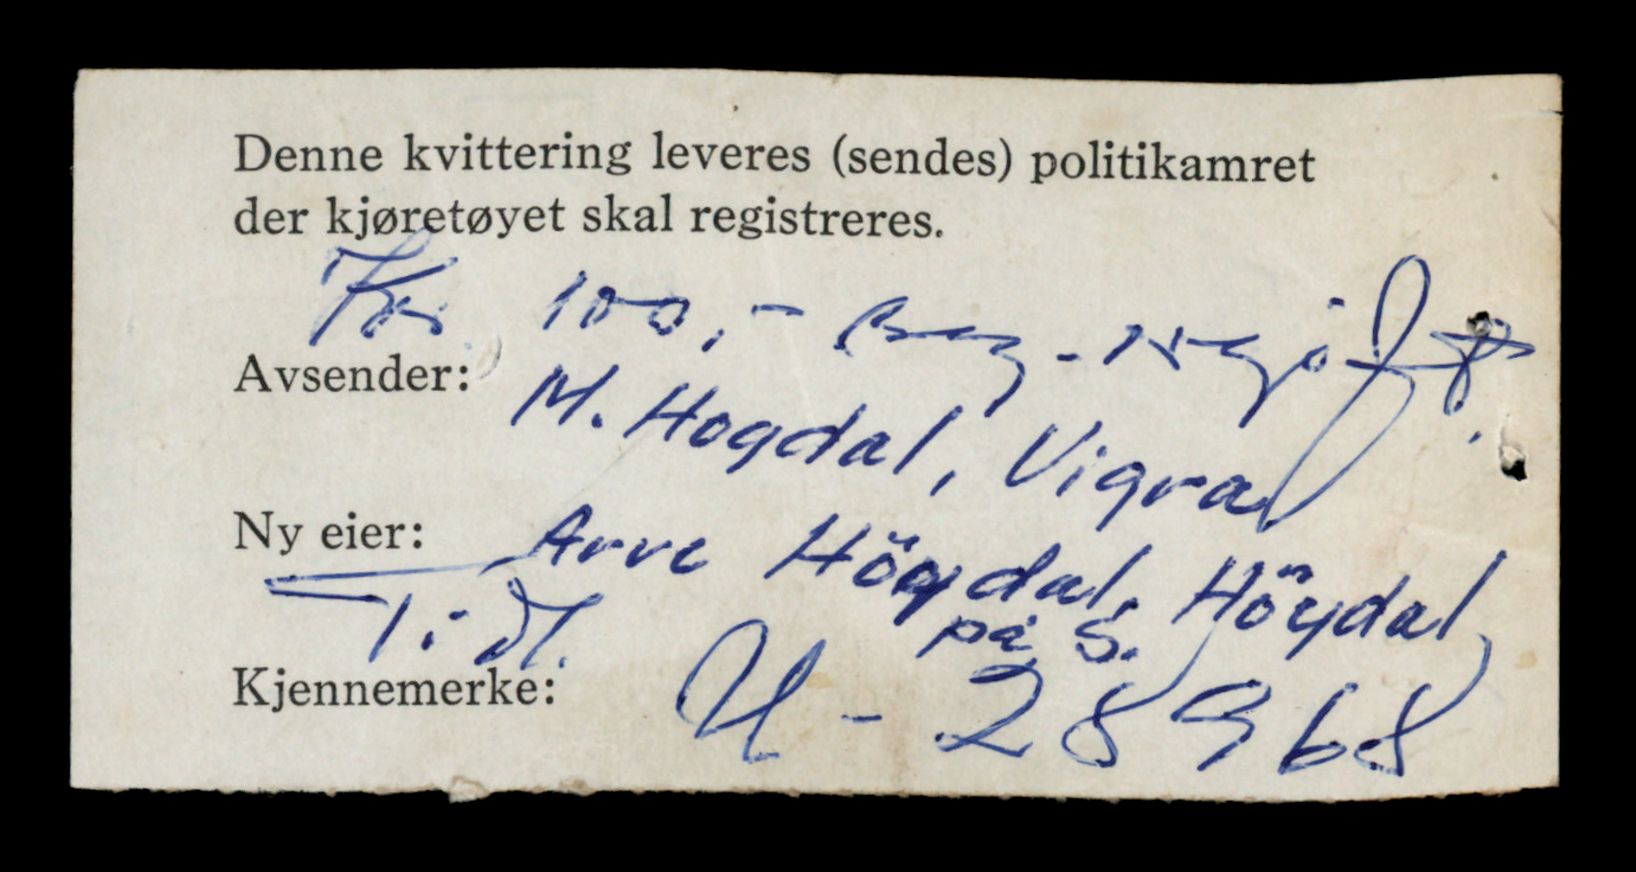 Denne kvittering leveres (sendes) politikamret
der kjøretøyet skal registreres.
Kr 100,- Reg.
Avsender: M. Hogdal, Vigra
Ny eier: Arve Högdal, Höydal
på S.
Kjennemerke: U-28968